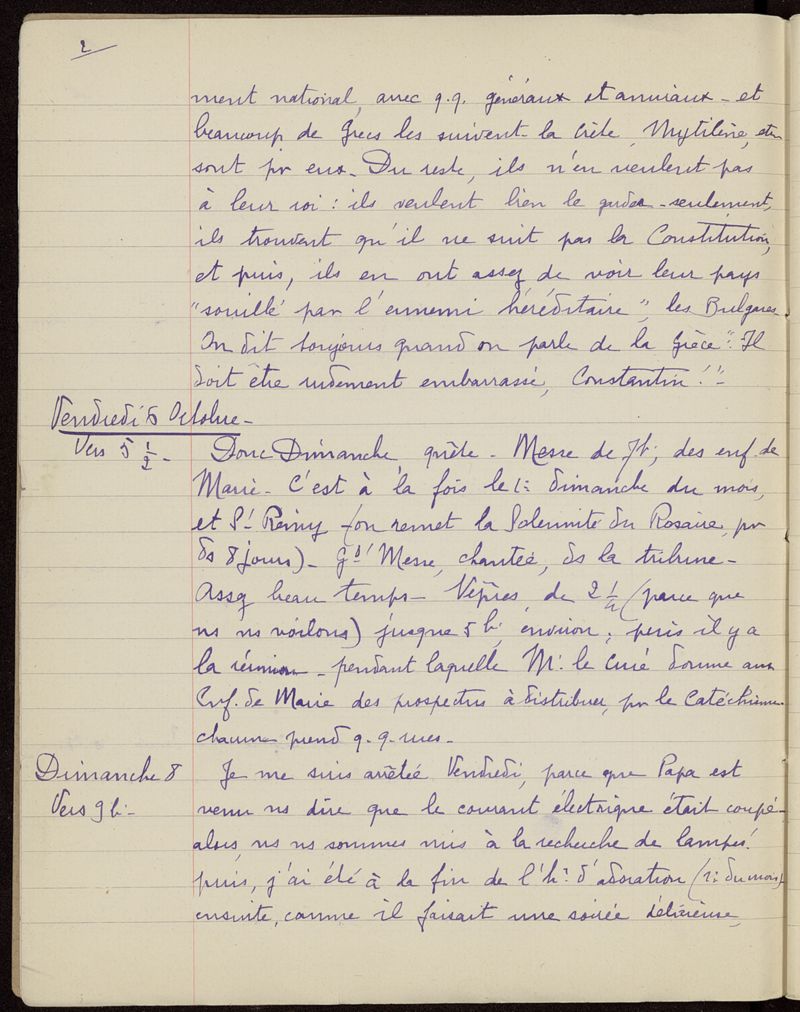 2
ment national, avec q.q. généraux et amiraux - et
beaucoup de Grecs les suivent - la Crète, Mytilène, etc
sont pr eux - Du reste, ils n'en veulent pas
à leur roi : ils veulent bien le garder - seulement,
ils trouvent qu'il ne suit pas la Constitution,
et puis, ils en ont assez de voir leur pays
"souillé par l'ennemi héréditaire", les Bulgares.
On dit toujours quand on parle de la Grèce "Il
doit être rudement embarrassé, Constantin !" -
Vendredi 6 Octobre -
Vers 5 1/2 - Donc Dimanche quête - Messe de 7h, des enf. de
Marie - C'est à la fois le 1er dimanche du mois,
et St Remy - (on remet la Solennité du Rosaire, pr
ds 8 jours) - Gd' Messe, chantée, ds la tribune -
Assez beau temps - Vêpres, de 2 1/2 (parce que
ns ns voilons) jusque 5h environ ; puis il y a
la réunion - pendant laquelle Mr le Curé donne aux
Enf. de Marie des prospectus à distribuer, pr le Catéchisme -
chacune prend q.q. rues -
Dimanche 8 Je me suis arrêtée Vendredi, parce que Papa est
Vers 9h - venu ns dire que le courant électrique était coupé -
alors, ns ns sommes mis à la recherche de lampes !
puis, j'ai été à la fin de l'hre d'adoration (1er du mois) -
ensuite, comme il faisait une soirée délicieuse,